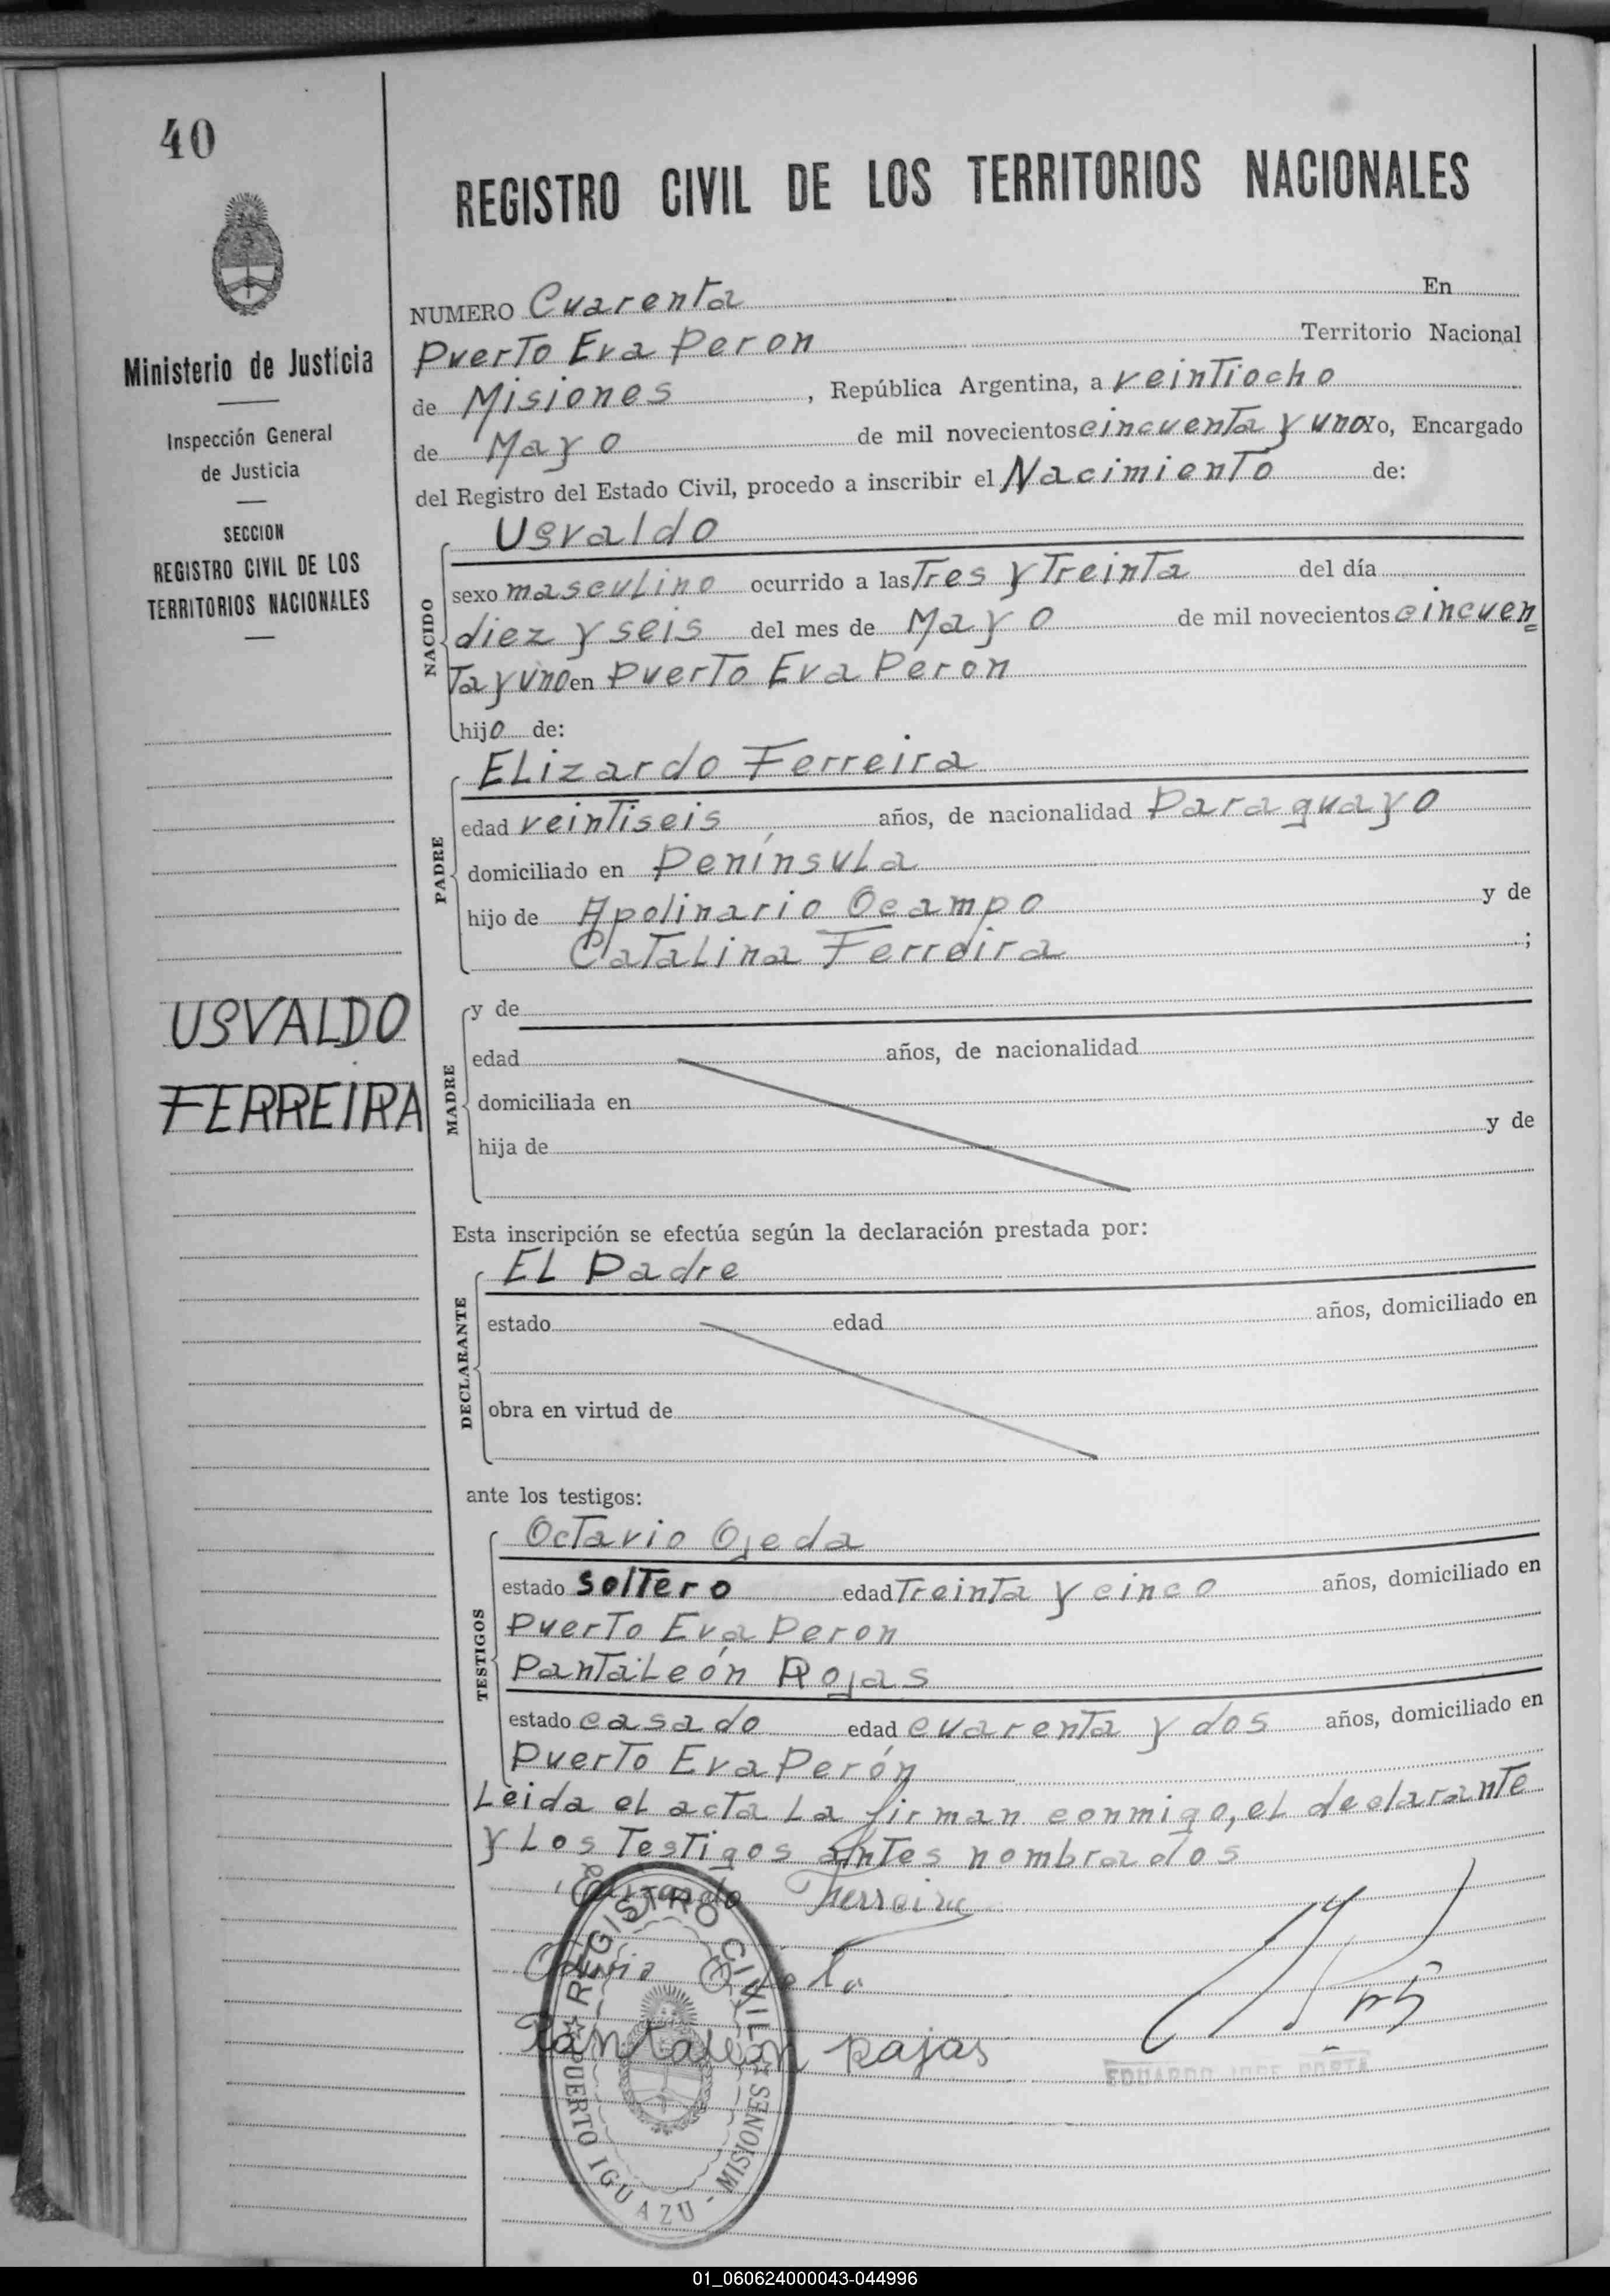 40
REGISTRO CIVIL DE LOS TERRITORIOS NACIONALES
Ministerio de Justicia
Inspección General
de Justicia
SECCION
REGISTRO CIVIL DE LOS
TERRITORIOS NACIONALES
USVALDO
FERREIRA
NUMERO Cuarenta En
Puerto Eva Peron Territorio Nacional
de Misiones, República Argentina, a veintiocho
de Mayo de mil novecientos cincuenta y uno Yo, Encargado
del Registro del Estado Civil, procedo a inscribir el Nacimiento de:
NACIDO
Usvaldo
sexo masculino ocurrido a las Tres y Treinta del día
diez y seis del mes de Mayo de mil novecientos cincuen=
Ta y uno en Puerto Eva Peron
hijo de:
PADRE
Elizardo Ferreira
edad veintiseis años, de nacionalidad Paraguayo
domiciliado en Península
hijo de Apolinario Ocampo y de
Catalina Ferreira ;
MADRE
y de
edad años, de nacionalidad
domiciliada en
hija de y de
Esta inscripción se efectúa según la declaración prestada por:
DECLARANTE
El Padre
estado edad años, domiciliado en
obra en virtud de
ante los testigos:
TESTIGOS
Octavio Ojeda
estado soltero edad Treinta y cinco años, domiciliado en
Puerto Eva Peron
Pantaleón Rojas
estado casado edad cuarenta y dos años, domiciliado en
Puerto Eva Perón
Leida el acta la firman conmigo, el declarante
y los Testigos antes nombrados
Ferreira
Pantaleon Rojas
EDUARDO
REGISTRO CIVIL
PUERTO IGUAZU - MISIONES
01_060624000043-044996